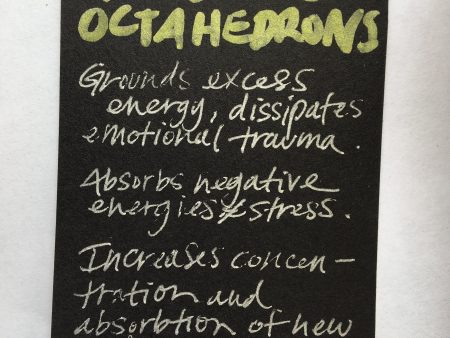 OCTAHEDRONS
Grounds excess
energy, dissipates
emotional trauma.
Absorbs negative
energies & stress.
Increases concen-
tration and
absorbtion of new